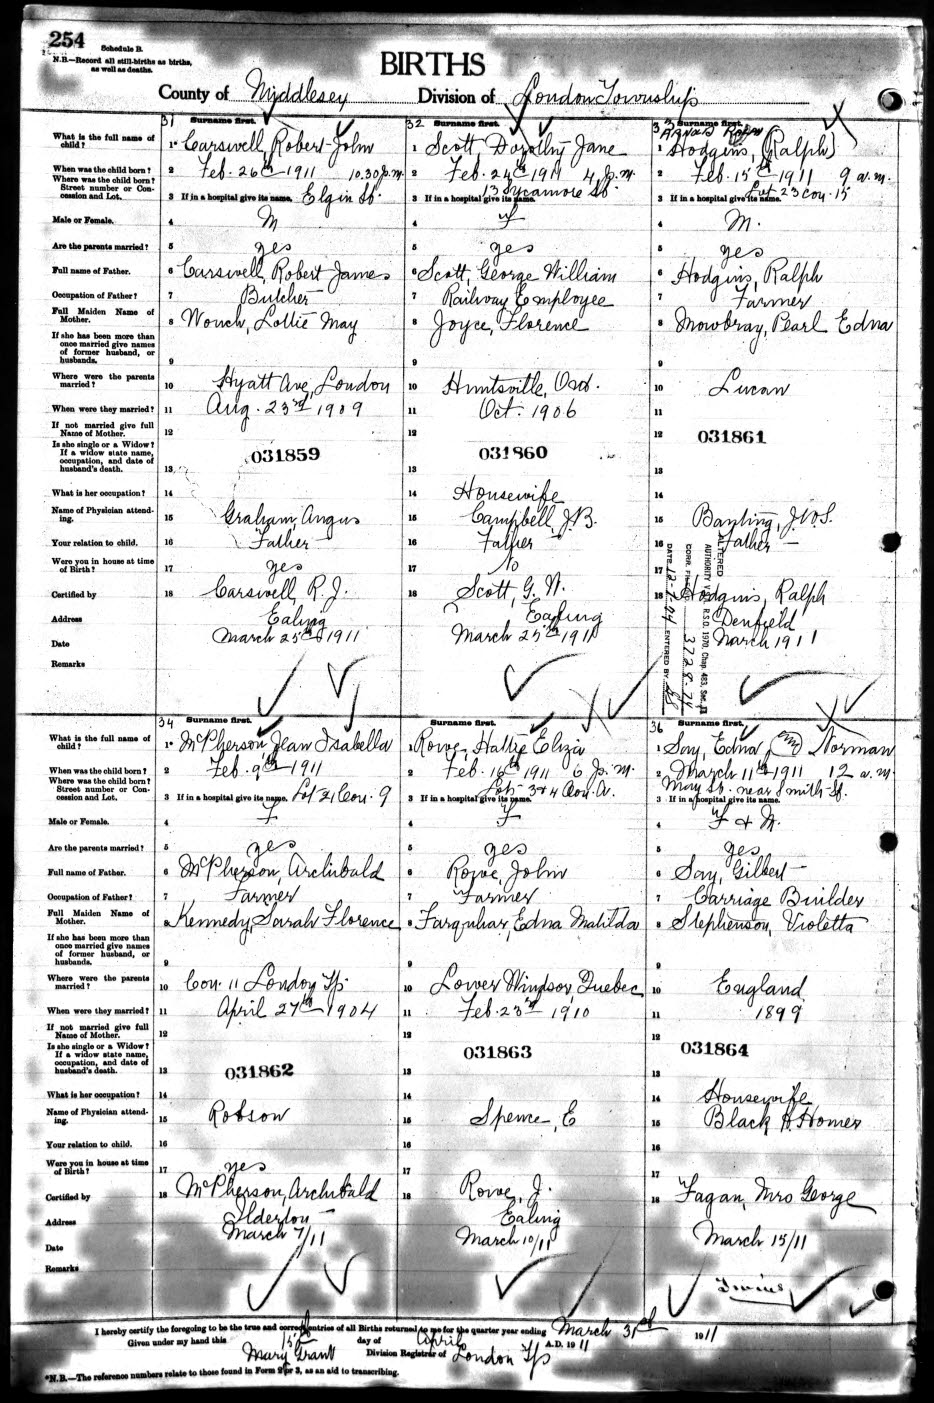 254
Schedule B.
N.B.—Record all still-births as births,
as well as deaths.
BIRTHS
County of Middlesex Division of London Township
31 Surname first. 32 Surname first. 33 Surname first.
What is the full name of child? 1* Carswell, Robert John 1 Scott Dorothy Jane 1 Hodgins, (Ralph) Arnold Ralph
When was the child born? 2 Feb. 26th 1911 10.30 p.m. 2 Feb. 24th 1911 4 p.m. 2 Feb. 15th 1911 9 a.m.
Where was the child born? Street number or Concession and Lot. 3 If in a hospital give its name. Elgin St. 3 If in a hospital give its name. 13 Sycamore St. 3 If in a hospital give its name. Lot 23 con. 15
Male or Female. 4 M 4 F 4 M.
Are the parents married? 5 yes 5 yes 5 yes
Full name of Father. 6 Carswell, Robert James 6 Scott, George William 6 Hodgins, Ralph
Occupation of Father? 7 Butcher 7 Railway Employee 7 Farmer
Full Maiden Name of Mother. 8 Wouch, Lottie May 8 Joyce, Florence 8 Mowbray, Pearl Edna
If she has been more than once married give names of former husband, or husbands. 9 9 9
Where were the parents married? 10 Hyatt Ave, London 10 Huntsville, Ont. 10 Lucan
When were they married? 11 Aug. 23rd 1909 11 Oct. 1906 11
If not married give full Name of Mother. 12 12 12
Is she single or a Widow? If a widow state name, occupation, and date of husband's death. 13 031859 13 031860 13 031861
What is her occupation? 14 14 Housewife 14
Name of Physician attending. 15 Graham, Angus 15 Campbell, J.B. 15 Banting, J.W.S.
Your relation to child. 16 Father 16 Father 16 Father
Were you in house at time of Birth? 17 yes 17 No 17
Certified by 18 Carswell, R. J. 18 Scott, G. W. 18 Hodgins, Ralph
Address Ealing Ealing Denfield
Date March 25th 1911 March 25th 1911 March 1911
Remarks
ALTERED
AUTHORITY V.S. R.S.O. 1970, Chap. 483, Sec.
CORR. FILE 3728-74
DATE ENTERED BY
34 Surname first. Surname first. 36 Surname first.
What is the full name of child? 1* McPherson, Jean Isabella 1 Rowe, Hattie Eliza 1 Say, Edna (and) Norman
When was the child born? 2 Feb. 9th 1911 2 Feb. 16th 1911 6 p.m. 2 March 11th 1911 12 a.m.
Where was the child born? Street number or Concession and Lot. 3 If in a hospital give its name. Lot 21 Con. 9 3 If in a hospital give its name. Lot 3+4 Con. A. 3 If in a hospital give its name. May St. near Smith St.
Male or Female. 4 F 4 F 4 F & M.
Are the parents married? 5 yes 5 yes 5 yes
Full name of Father. 6 McPherson, Archibald 6 Rowe, John 6 Say, Gilbert
Occupation of Father? 7 Farmer 7 Farmer 7 Carriage Builder
Full Maiden Name of Mother. 8 Kennedy, Sarah Florence 8 Farquhar, Edna Matilda 8 Stephenson, Violetta
If she has been more than once married give names of former husband, or husbands. 9 9 9
Where were the parents married? 10 Con. 11 London Tp. 10 Lower Windsor, Quebec 10 England
When were they married? 11 April 27th 1904 11 Feb. 23rd 1910 11 1899
If not married give full Name of Mother. 12 12 12
Is she single or a Widow? If a widow state name, occupation, and date of husband's death. 13 031862 13 031863 13 031864
What is her occupation? 14 14 14 Housewife
Name of Physician attending. 15 Robson 15 Spence, E 15 Black, H. Homer
Your relation to child. 16 16 16
Were you in house at time of Birth? 17 yes 17 17
Certified by 18 McPherson, Archibald 18 Rowe, J. 18 Fagan, Mrs George
Address Ilderton Ealing
Date March 7/11 March 10/11 March 15/11
Remarks Twins
I hereby certify the foregoing to be the true and correct entries of all Births returned to me for the quarter year ending March 31st 1911
Given under my hand this 15th day of April A.D. 1911
Mary Grant Division Registrar of London Tp
*N.B.—The reference numbers relate to those found in Form 2 or 3, as an aid to transcribing.